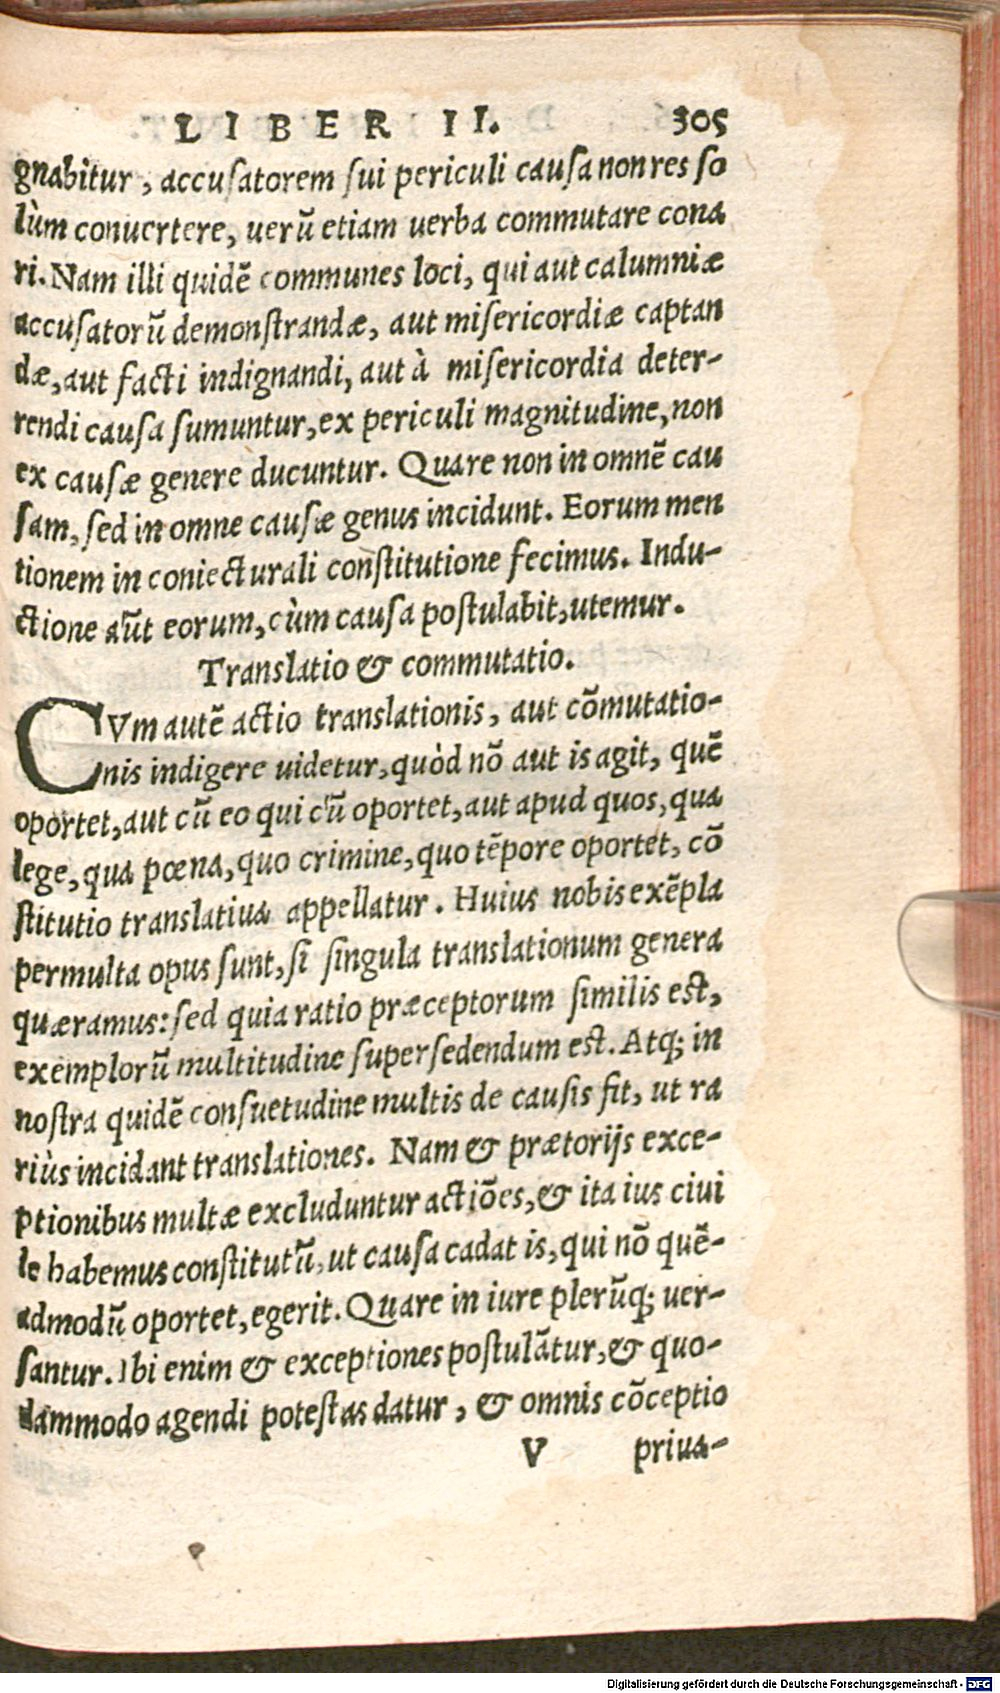 LIBER II. 305
gnabitur, accusatorem sui periculi causa non res so
lùm conuertere, uerũ etiam uerba commutare cona
ri. Nam illi quidẽ communes loci, qui aut calumniæ
accusatorũ demonstrandæ, aut misericordiæ captan
dæ, aut facti indignandi, aut à misericordia deter-
rendi causa sumuntur, ex periculi magnitudine, non
ex causæ genere ducuntur. Quare non in omnẽ cau
sam, sed in omne causæ genus incidunt. Eorum men
tionem in coniecturali constitutione fecimus. Indu-
ctione aũt eorum, cùm causa postulabit, utemur.
Translatio & commutatio.
CVm autẽ actio translationis, aut cõmutatio-
nis indigere uidetur, quòd nõ aut is agit, quẽ
oportet, aut cũ eo qui cũ oportet, aut apud quos, qua
lege, qua pœna, quo crimine, quo tẽpore oportet, cõ
stitutio translatiua appellatur. Huius nobis exẽpla
permulta opus sunt, si singula translationum genera
quæramus: sed quia ratio præceptorum similis est,
exemplorũ multitudine supersedendum est. Atq; in
nostra quidẽ consuetudine multis de causis fit, ut ra
riùs incidant translationes. Nam & prætorijs exce-
ptionibus multæ excluduntur actiões, & ita ius ciui
le habemus constitutũ, ut causa cadat is, qui nõ quẽ-
admodũ oportet, egerit. Quare in iure plerũq; uer-
santur. Ibi enim & exceptiones postulãtur, & quo-
dammodo agendi potestas datur, & omnis cõceptio
V priua-
Digitalisierung gefördert durch die Deutsche Forschungsgemeinschaft - DFG